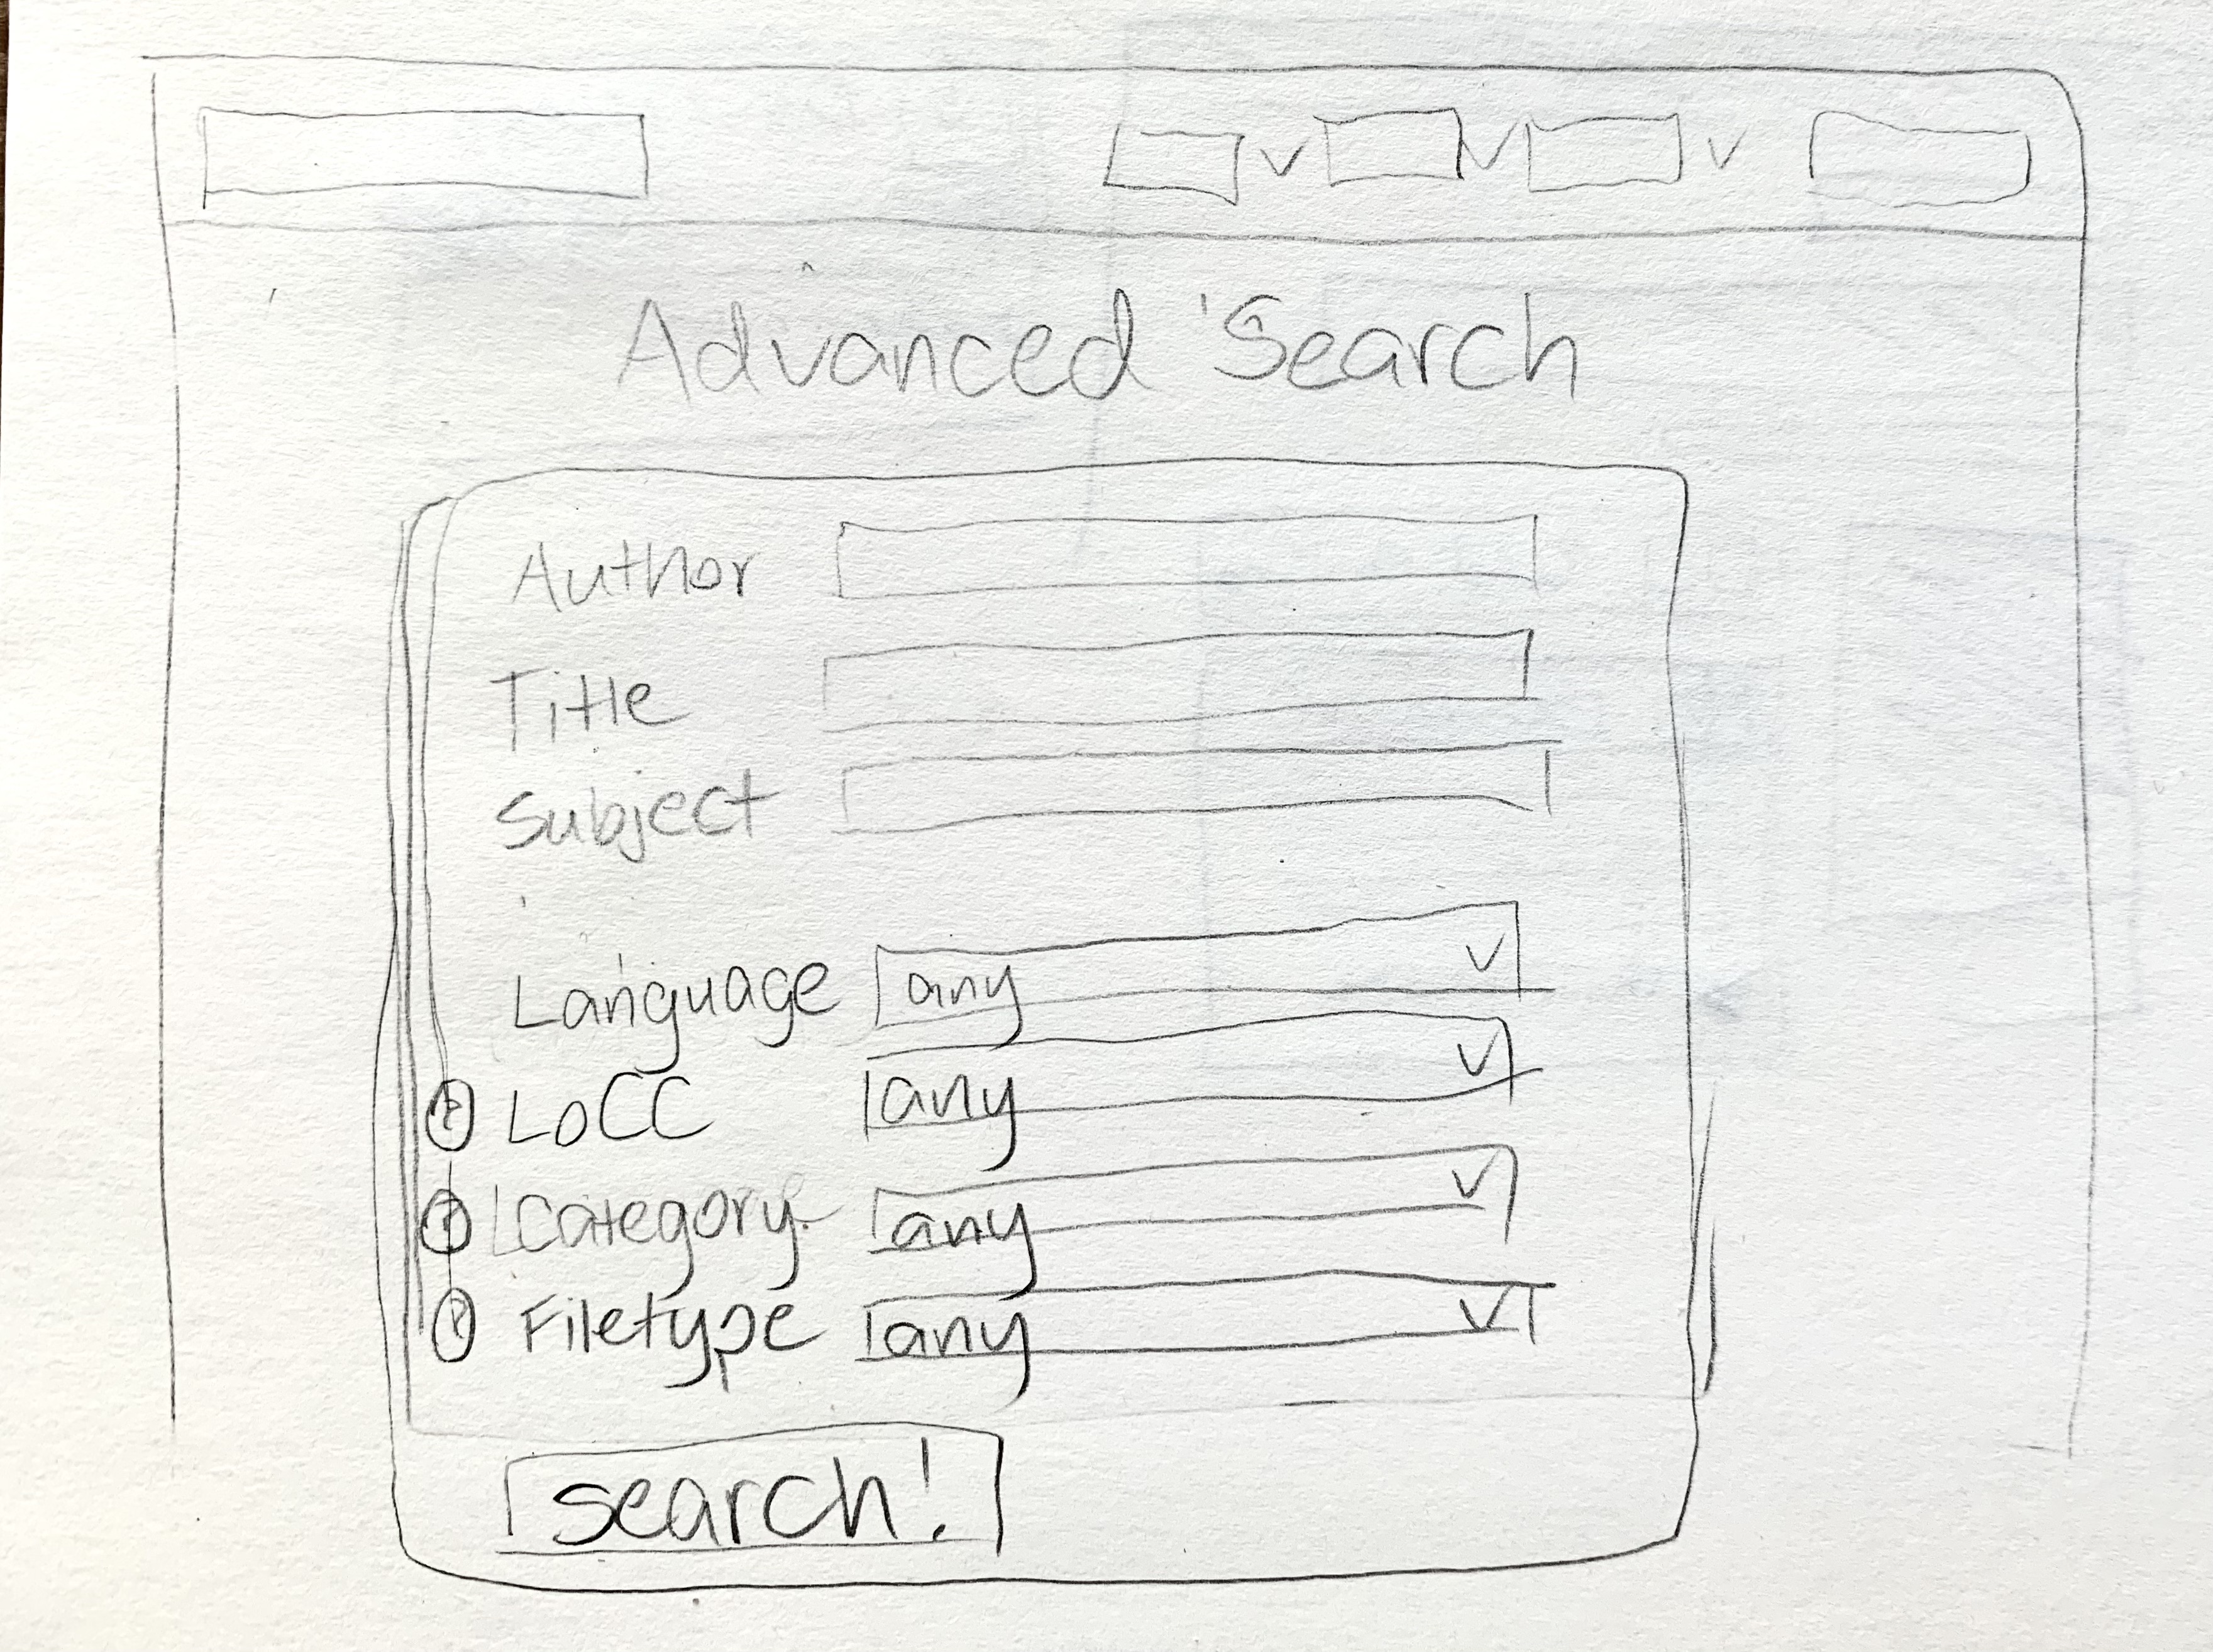 Advanced Search
Author
Title
Subject
Language any
? LoCC any
? Category any
? Filetype any
search!